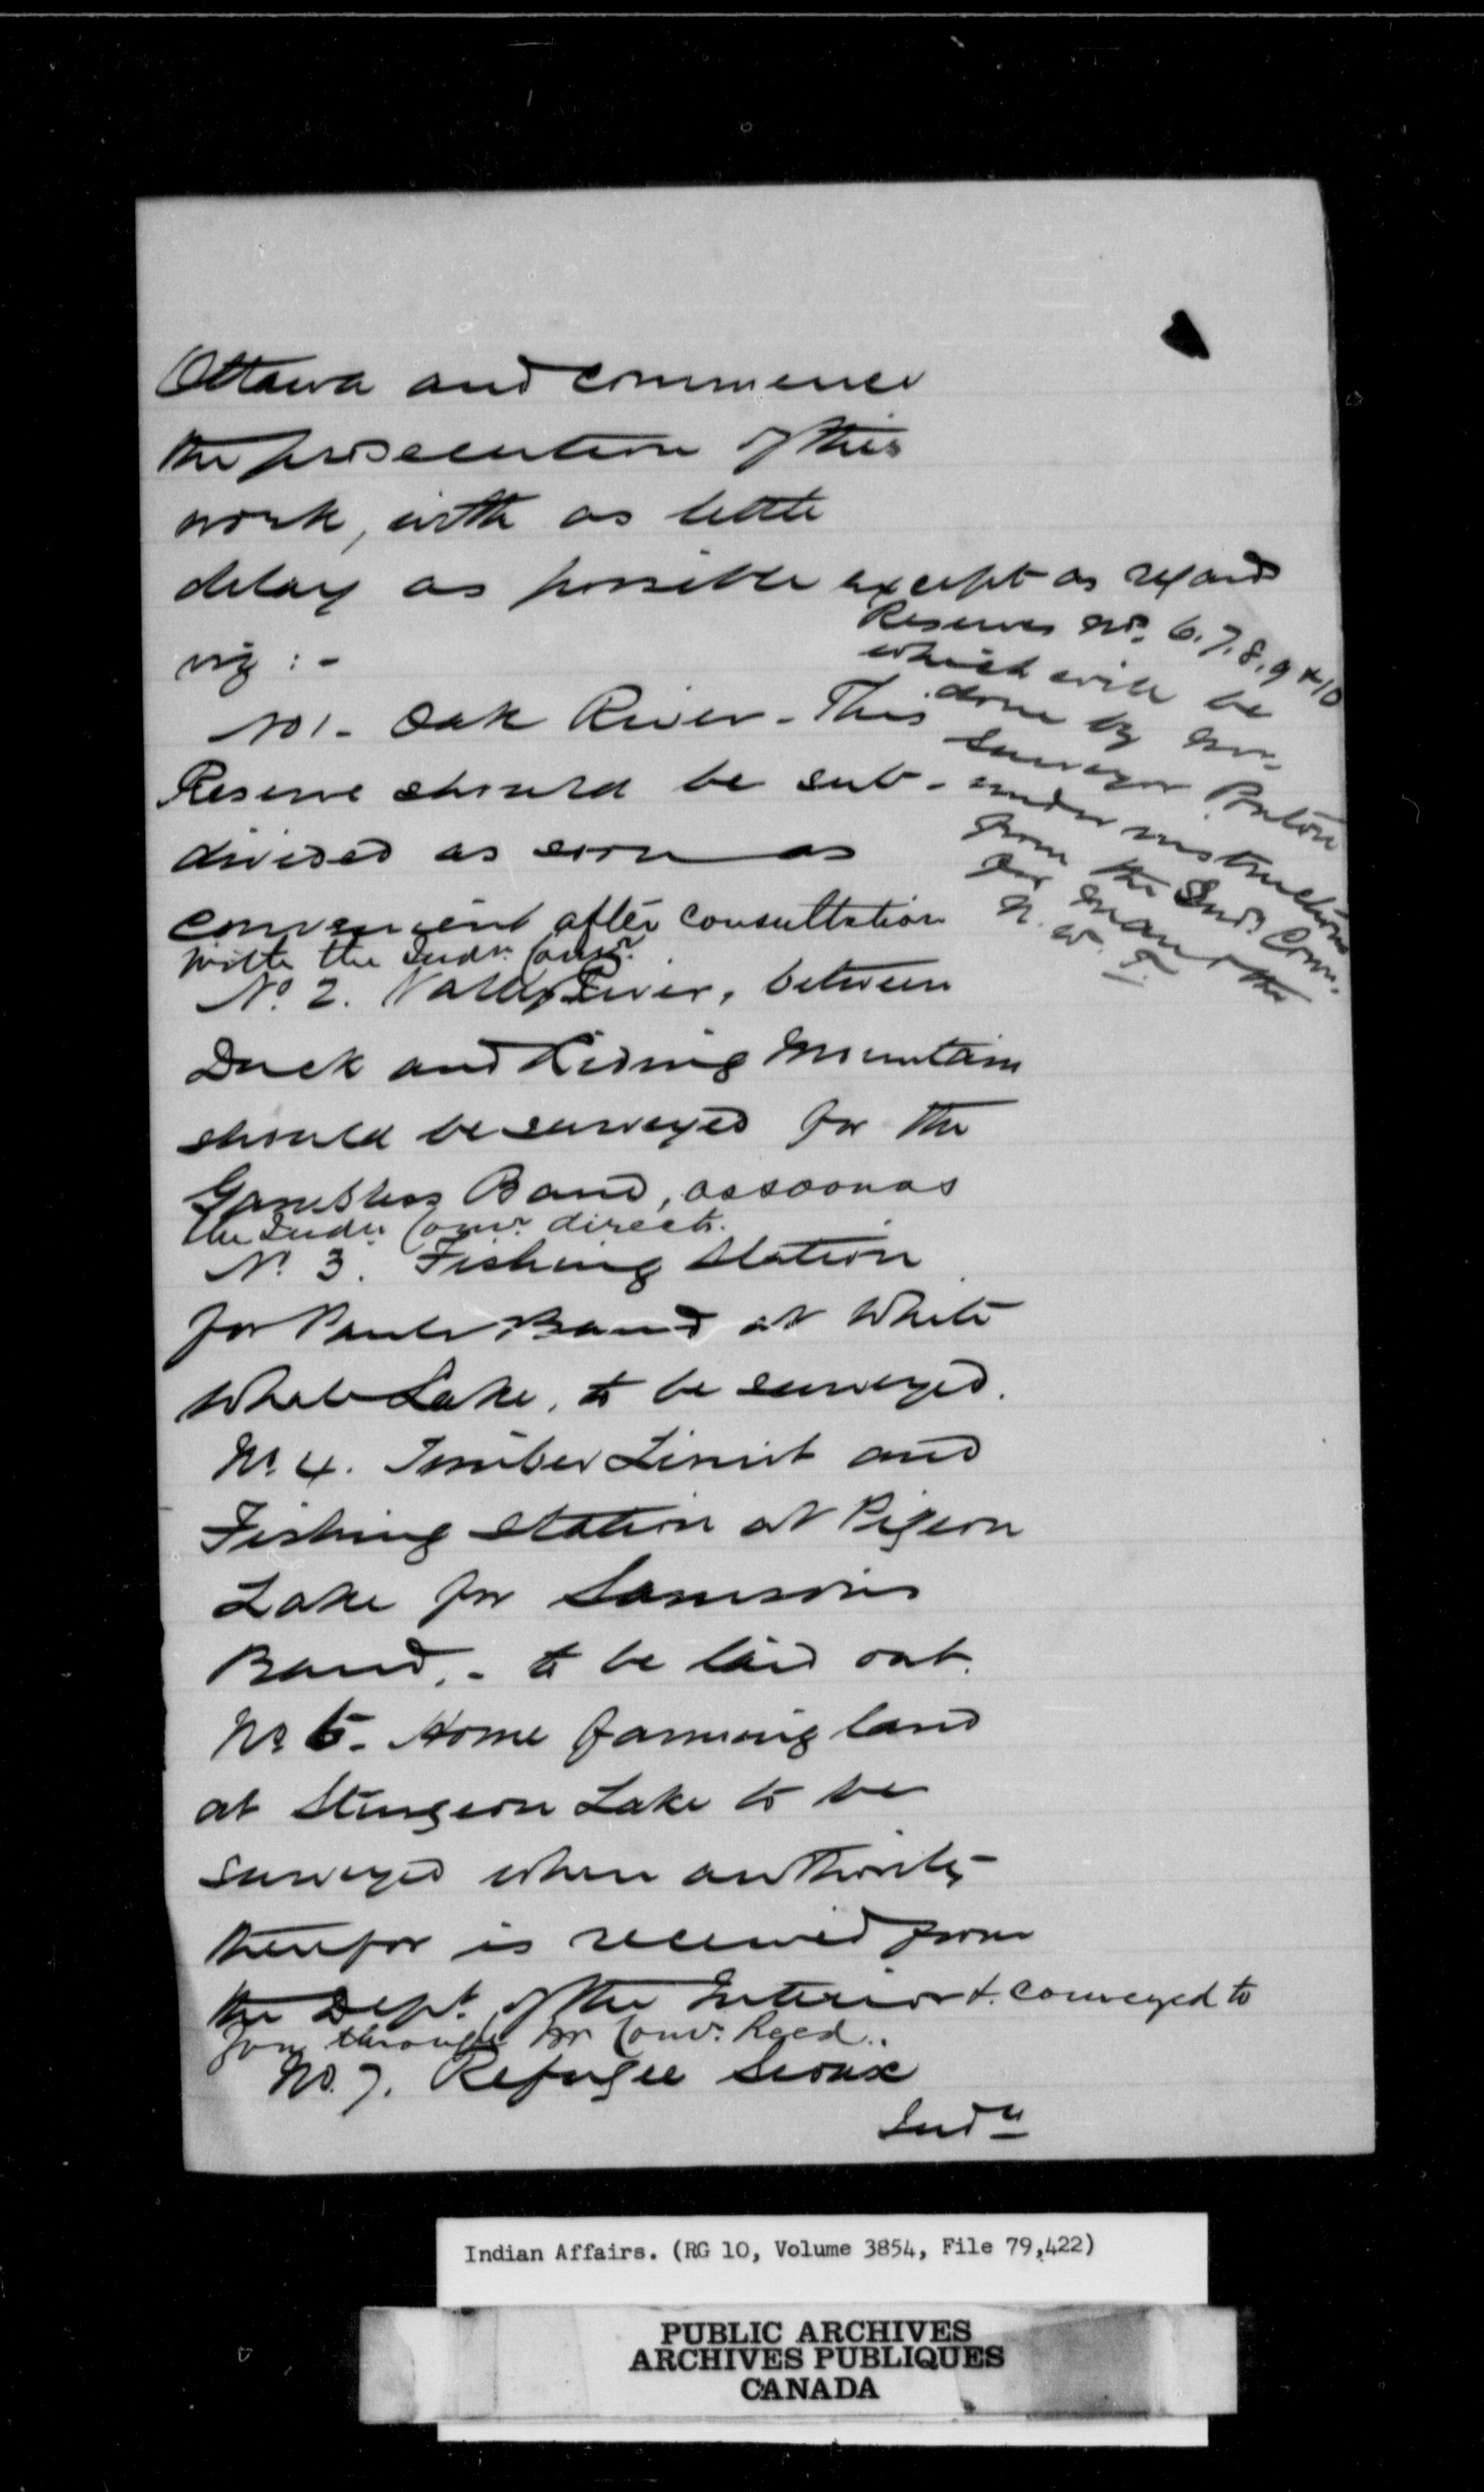 Ottawa and commence
the prosecution of this
work, with as little
delay as possible except as regards
Reserves Nos. 6. 7. 8. 9 & 10
which will be
done by
Surveyor Ponton
under instructions
from the Indn Com.
for Man & the
N. W. T.
viz : -
No 1 - Oak River - This
Reserve should be sub-
divided as soon as
convenient after consultation
with the Indn. Comr.
No 2. Valley River, between
Duck and Riding Mountain
should be surveyed for the
Gambler's Band, as soon as
the Indn. Comr. directs.
No 3. Fishing Station
for Pauls Band at White
Whale Lake, to be surveyed.
No 4. Timber Limit and
Fishing Station at Pigeon
Lake for Samson's
Band, - to be laid out.
No 5 - Home farming land
at Sturgeon Lake to be
surveyed when authority
therefor is received from
the Dept. of the Interior & conveyed to
you through Mr Comr. Reed.
No. 7. Refugee Sioux
Indn
Indian Affairs. (RG 10, Volume 3854, File 79,422)
PUBLIC ARCHIVES
ARCHIVES PUBLIQUES
CANADA